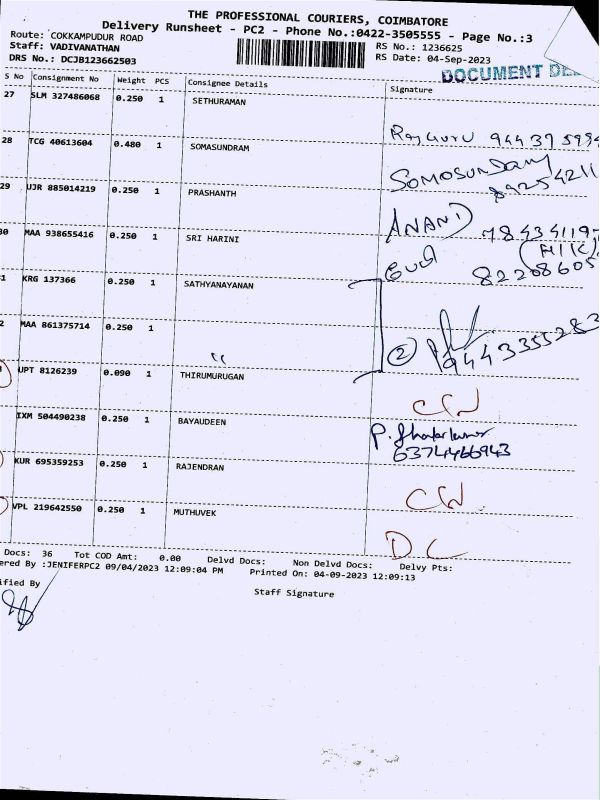 THE PROFESSIONAL COURIERS, COIMBATORE
Delivery Runsheet - PC2 - Phone No.:0422-3505555 - Page No.:3
Route: COKKAMPUDUR ROAD
RS No.: 1236625
Staff: VADIVANATHAN
RS Date: 04-Sep-2023
DRS No.: DCJB123662503
DOCUMENT
S No Consignment No Weight PCS Consignee Details Signature
27 SLM 327486068 0.250 1 SETHURAMAN
28 TCG 40613604 0.480 1 SOMASUNDRAM
SOMOSUNDAM
89254211
29 UJR 885014219 0.250 1 PRASHANTH
ANAND
30 MAA 938655416 0.250 1 SRI HARINI
1 KRG 137366 0.250 1 SATHYANAYANAN
2 MAA 861375714 0.250 1 "
2 9443355283
UPT 8126239 0.090 1 THIRUMURUGAN
IXM 504490238 0.250 1 BAYAUDEEN
6374466943
KUR 695359253 0.250 1 RAJENDRAN
VPL 219642550 0.250 1 MUTHUVEK
DC
Docs: 36 Tot COD Amt: 0.00 Delvd Docs: Non Delvd Docs: Delvy Pts:
ered By :JENIFERPC2 09/04/2023 12:09:04 PM Printed On: 04-09-2023 12:09:13
ified By
Staff Signature